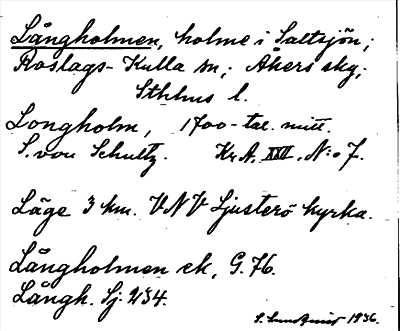 Långholmen, holme i Saltsjön;
Roslags-Kulla sn; Åkers skg;
Sthlms l.
Longholm, 1700-tal. mitt.
S. von Schultz. Kr.A. XXV. N:o 7.
Läge 3 km. VNV Ljusterö kyrka.
Långholmen ek, G. 76.
Långh. Sj. 234.
S. 1936.